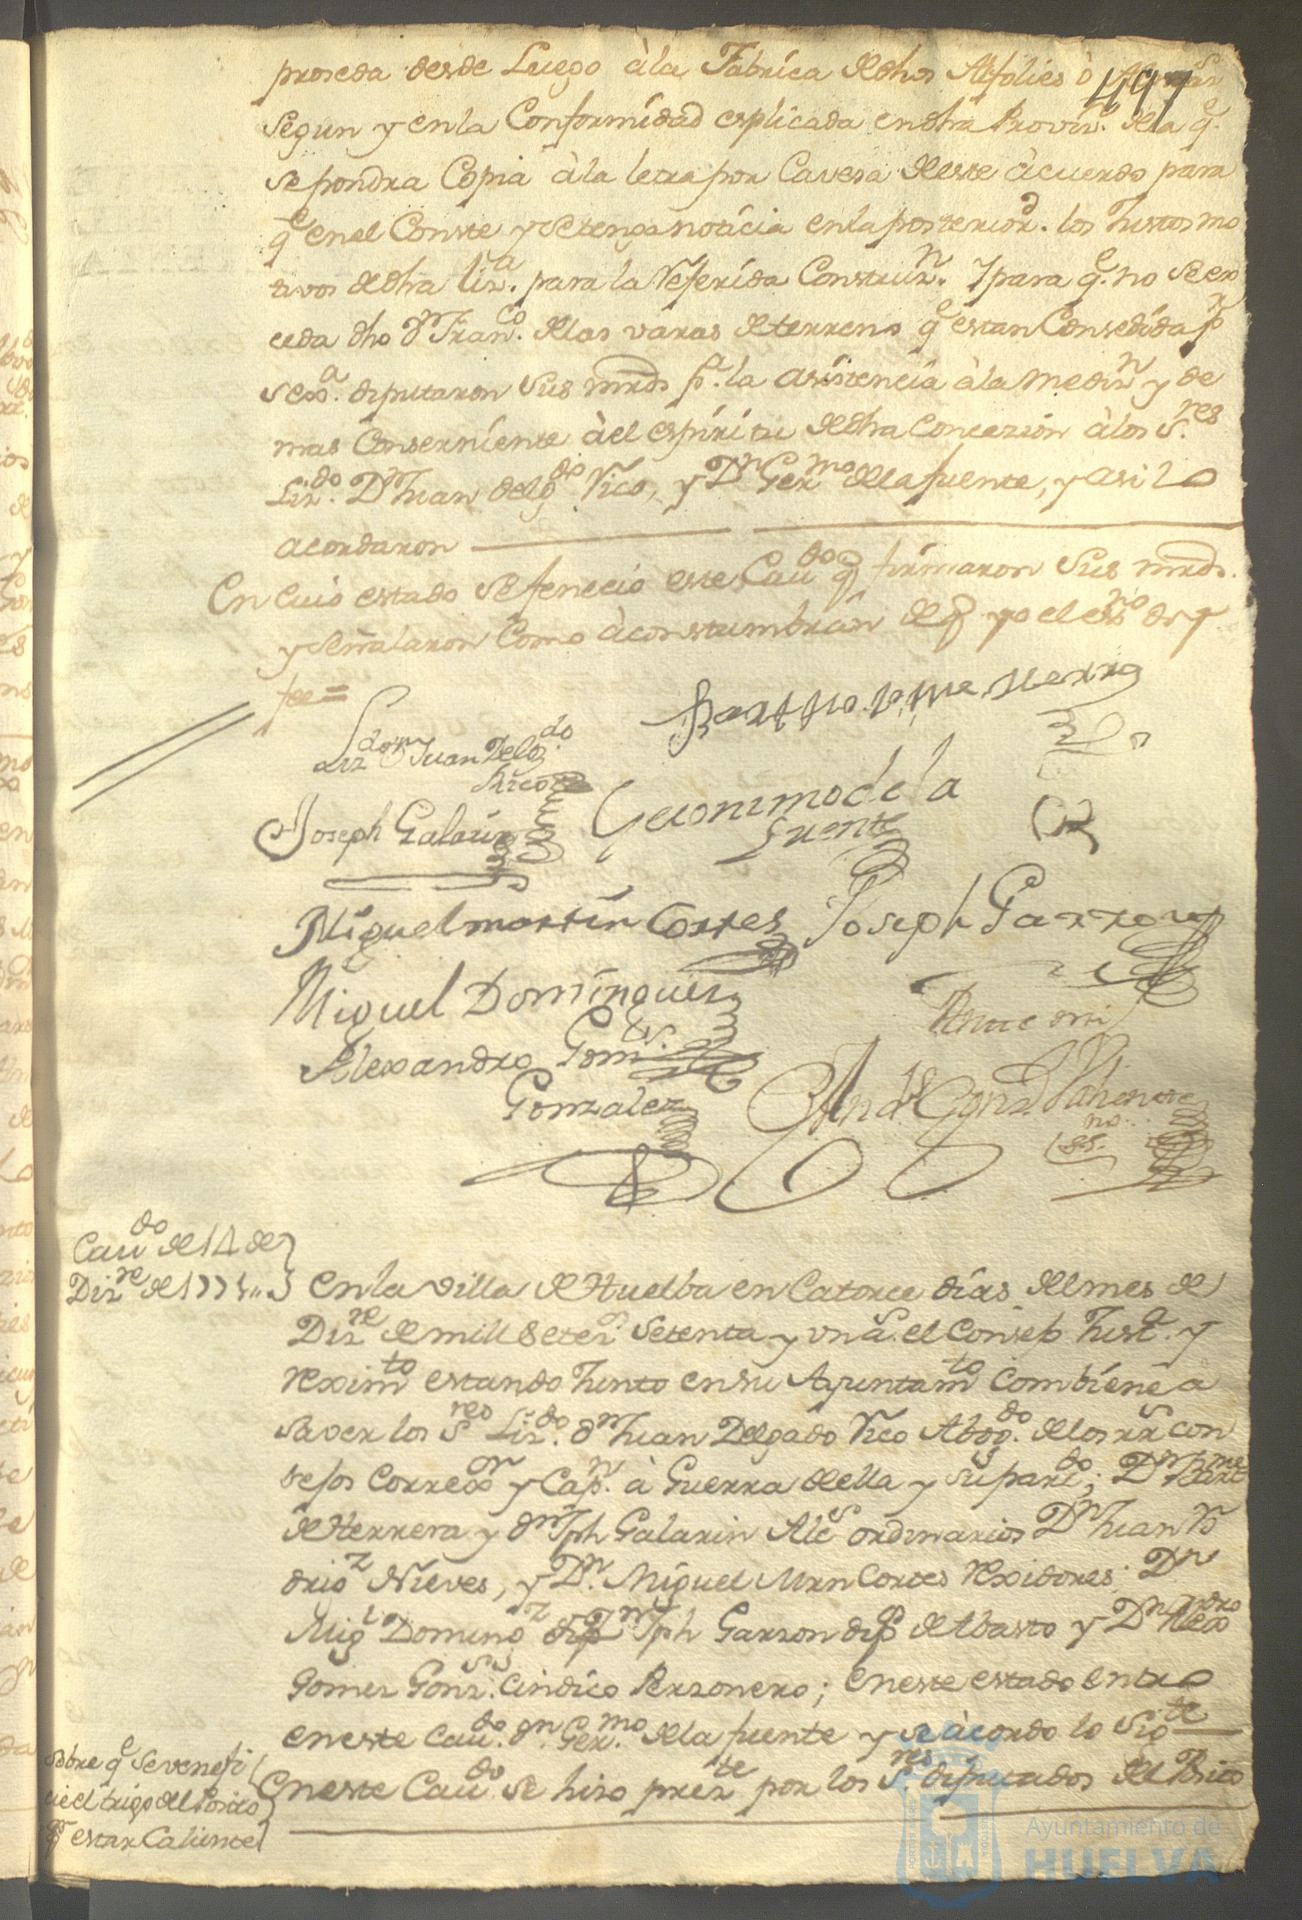 497
proseda desde Luego à la Fabrica de dhos Alfolies ò
Segun y en la Conformidad esplicada en dha Provix.ª de la q.e
se pondra Copia à la letra por Cavesa de este àcuerdo para
q.e en el Conste y se tenga noticia en la posterior.d los Justos mo
tivos de dha liz.a para la Referida Construz.n Y para q.e no se ex
ceda dho d.n Fran.co de las varas de terreno q.e estan Consedida p.r
Sex.a diputaron Sus mrds p.a la asistencia à la mediz.n y de
mas Conserniente àel espiritu de dha Concezion à los S.res
Liz.do D.n Juan delg.do Rico, y D.n Ger.mo de la fuente, y asi lo
acordaron
En cuio estado se fenecio este Cau.do q firmaron Sus mrds.
y señalaron Como àcostumbrân de q yo el es.no doy
fee=
Liz.do d.n Juan Delg.do
Rico
Barth.o
Herrera
Joseph Galarin
Geronimo de la
Fuente
Miguel martin Cortes
Joseph Garzon
Miguel Dominguez
Alexandro Gom.s
Gonzalez
Ante mi
And.s Gonz.
ss.no
Cau.do de 14 de
Diz.re de 1771..
En la Villa de Huelba en Catorce dias del mes de
Diz.re de mill setez.s Setenta y un a.s el Consejo Just.a y
Reximt.o estando Junto en su Ayuntam.to Combiene a
saver los S.res Liz.do d.n Juan Delgado Rico Abog.do de los rr.s con
sejos Correx.or y Cap.n à Guerra de ella y su part.do; D.n Bart.me
de Herrera y d.n Jph Galarin Alc.s ordinarios D.n Juan Ro
drig.z Nieves, y D.n Miguel Mrn Cortes Rexidores; D.n
Mig.l Doming.z dip.do D.n Jph Garzon dip.do de Abasto y D.n Alexandro
Gomez Gonz.s Cindico Perzonero; en este estado entro
en este Cau.do d.n Ger.mo de la fuente y se àcordo lo Sig.te
Sobre q.e se venefi
cie el trigo del Posito
q estar Caliente
En este Cau.do se hizo prez.te por los S.res diputados del Posito
Ayuntamiento de
HUELVA